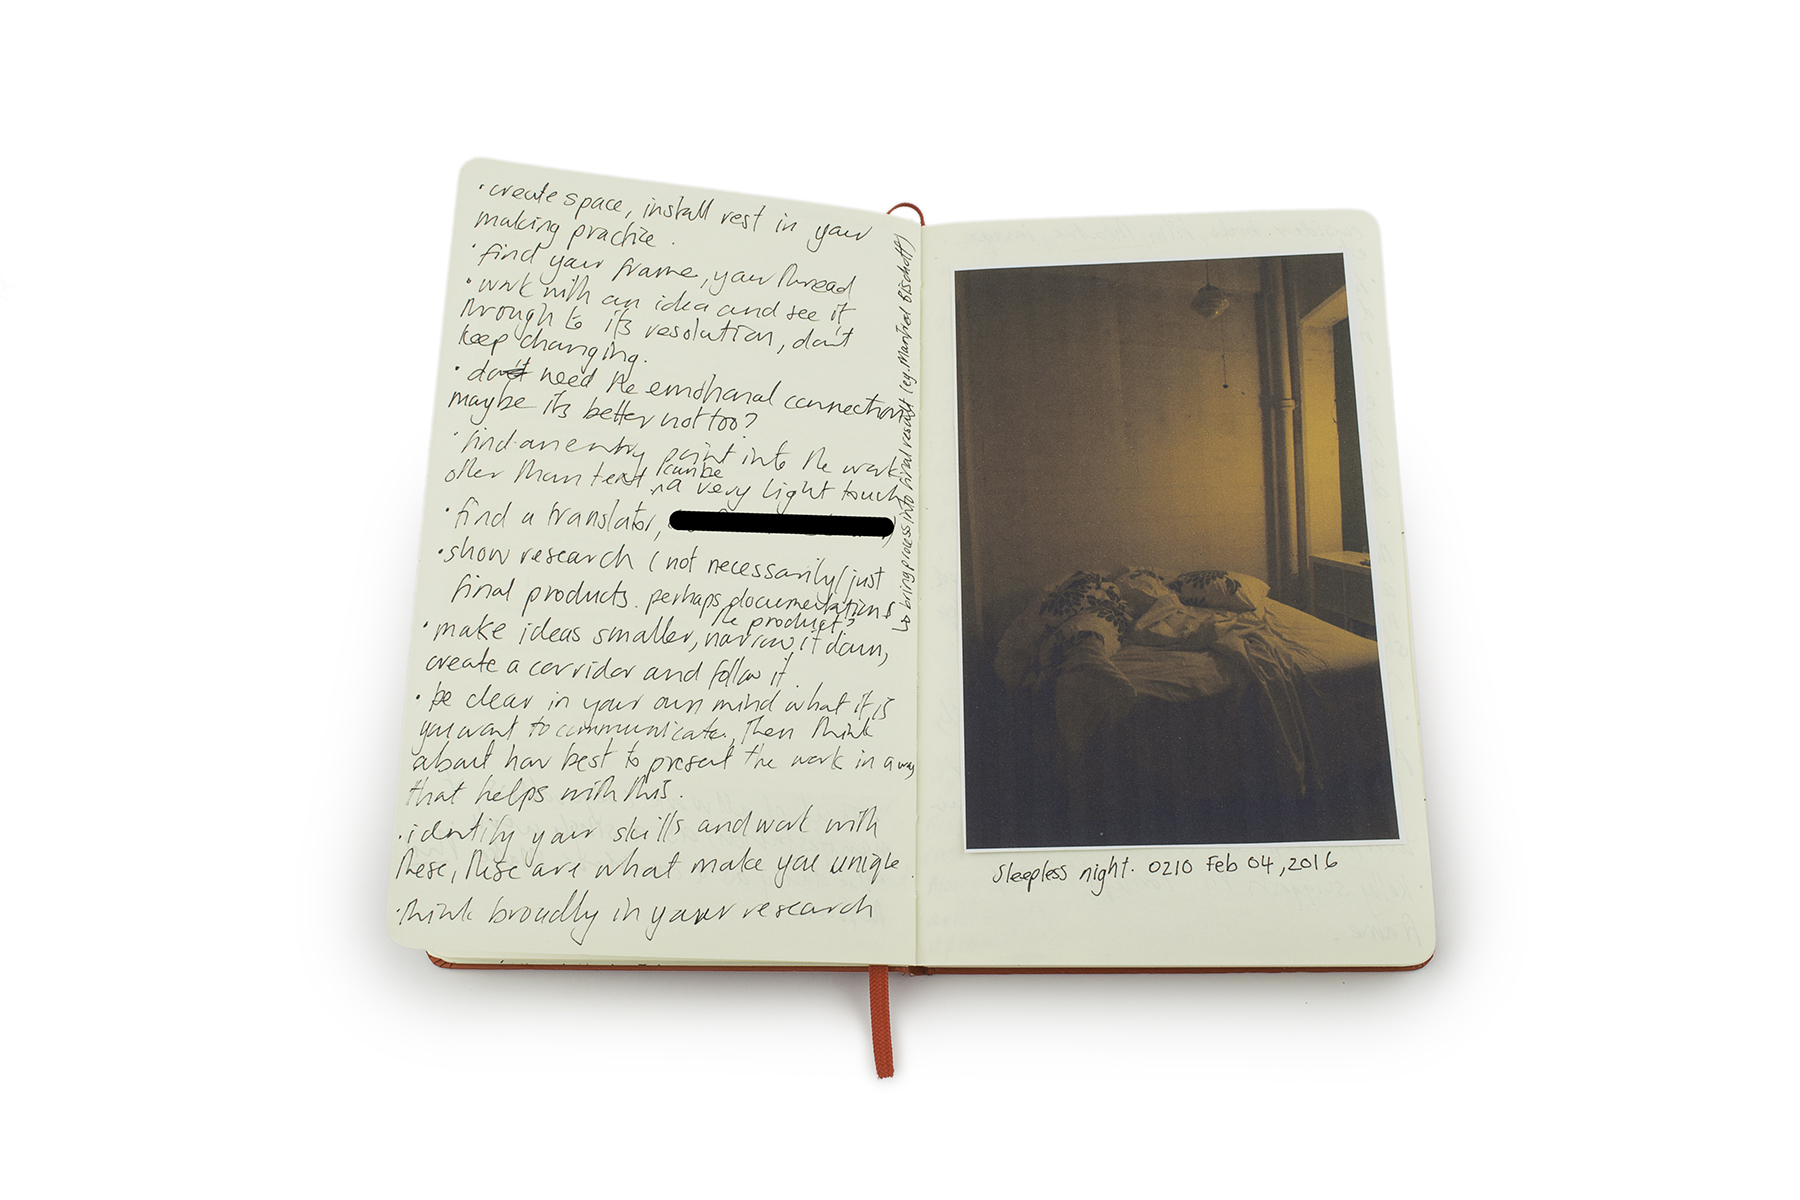 · create space, install rest in your
making practice.
· find your frame, your thread
· work with an idea and see it
through to its resolution, don't
keep changing.
· do need the emotional connection
maybe its better not too?
· find an entry point into the work
other than text can be
a very light touch
· find a translator,
· show research (not necessarily just
final products. perhaps documentation is
the product?
· make ideas smaller, narrow it down,
create a corridor and follow it.
· be clear in your own mind what it is
you want to communicate, then think
about how best to present the work in a way
that helps with this.
· identify your skills and work with
these, these are what make you unique.
· think broadly in your research
↳ bring process into final result (eg. Manfred Bischoff)
sleepless night. 0210 Feb 04, 2016